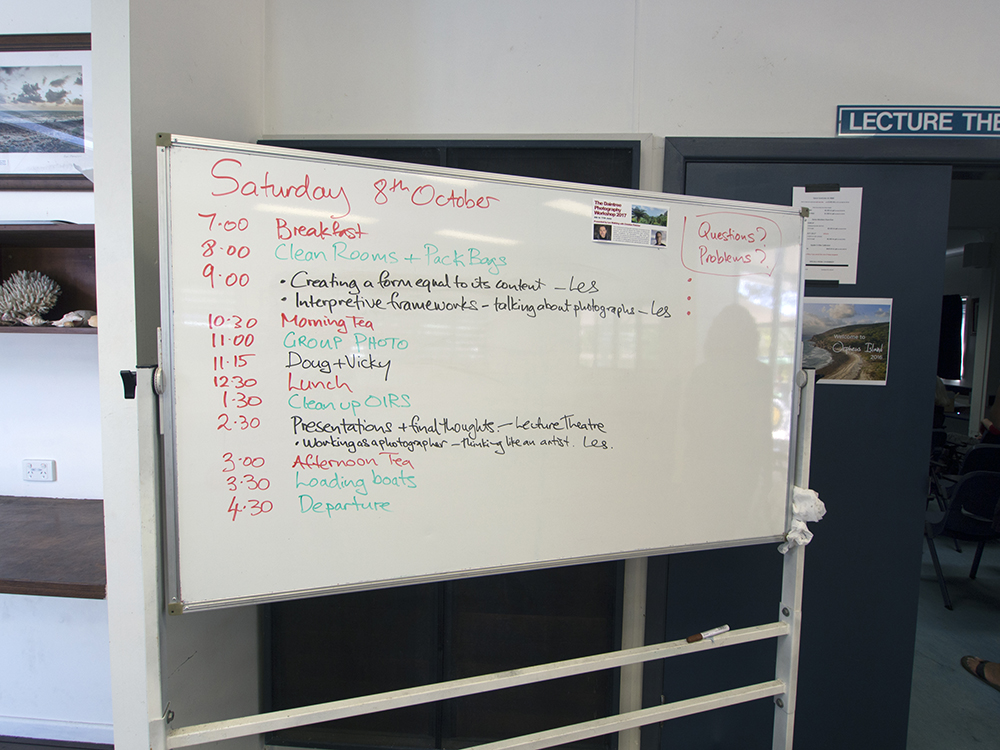 LECTURE THE
Saturday 8th October
7.00 Breakfast
8.00 Clean Rooms + Pack Bags
9.00 • Creating a form equal to its content - Les
• Interpretive frameworks - talking about photographs - Les
10:30 Morning Tea
11.00 GROUP PHOTO
11.15 Doug + Vicky
12:30 Lunch
1.30 Clean up OIRS
2.30 Presentations + final thoughts. - Lecture Theatre
• Working as a photographer - thinking like an artist. Les.
3.00 Afternoon Tea
3.30 Loading boats
4.30 Departure
The Daintree
Photography
Workshop 2017
Questions?
Problems?
Welcome to
Orpheus Island
2016